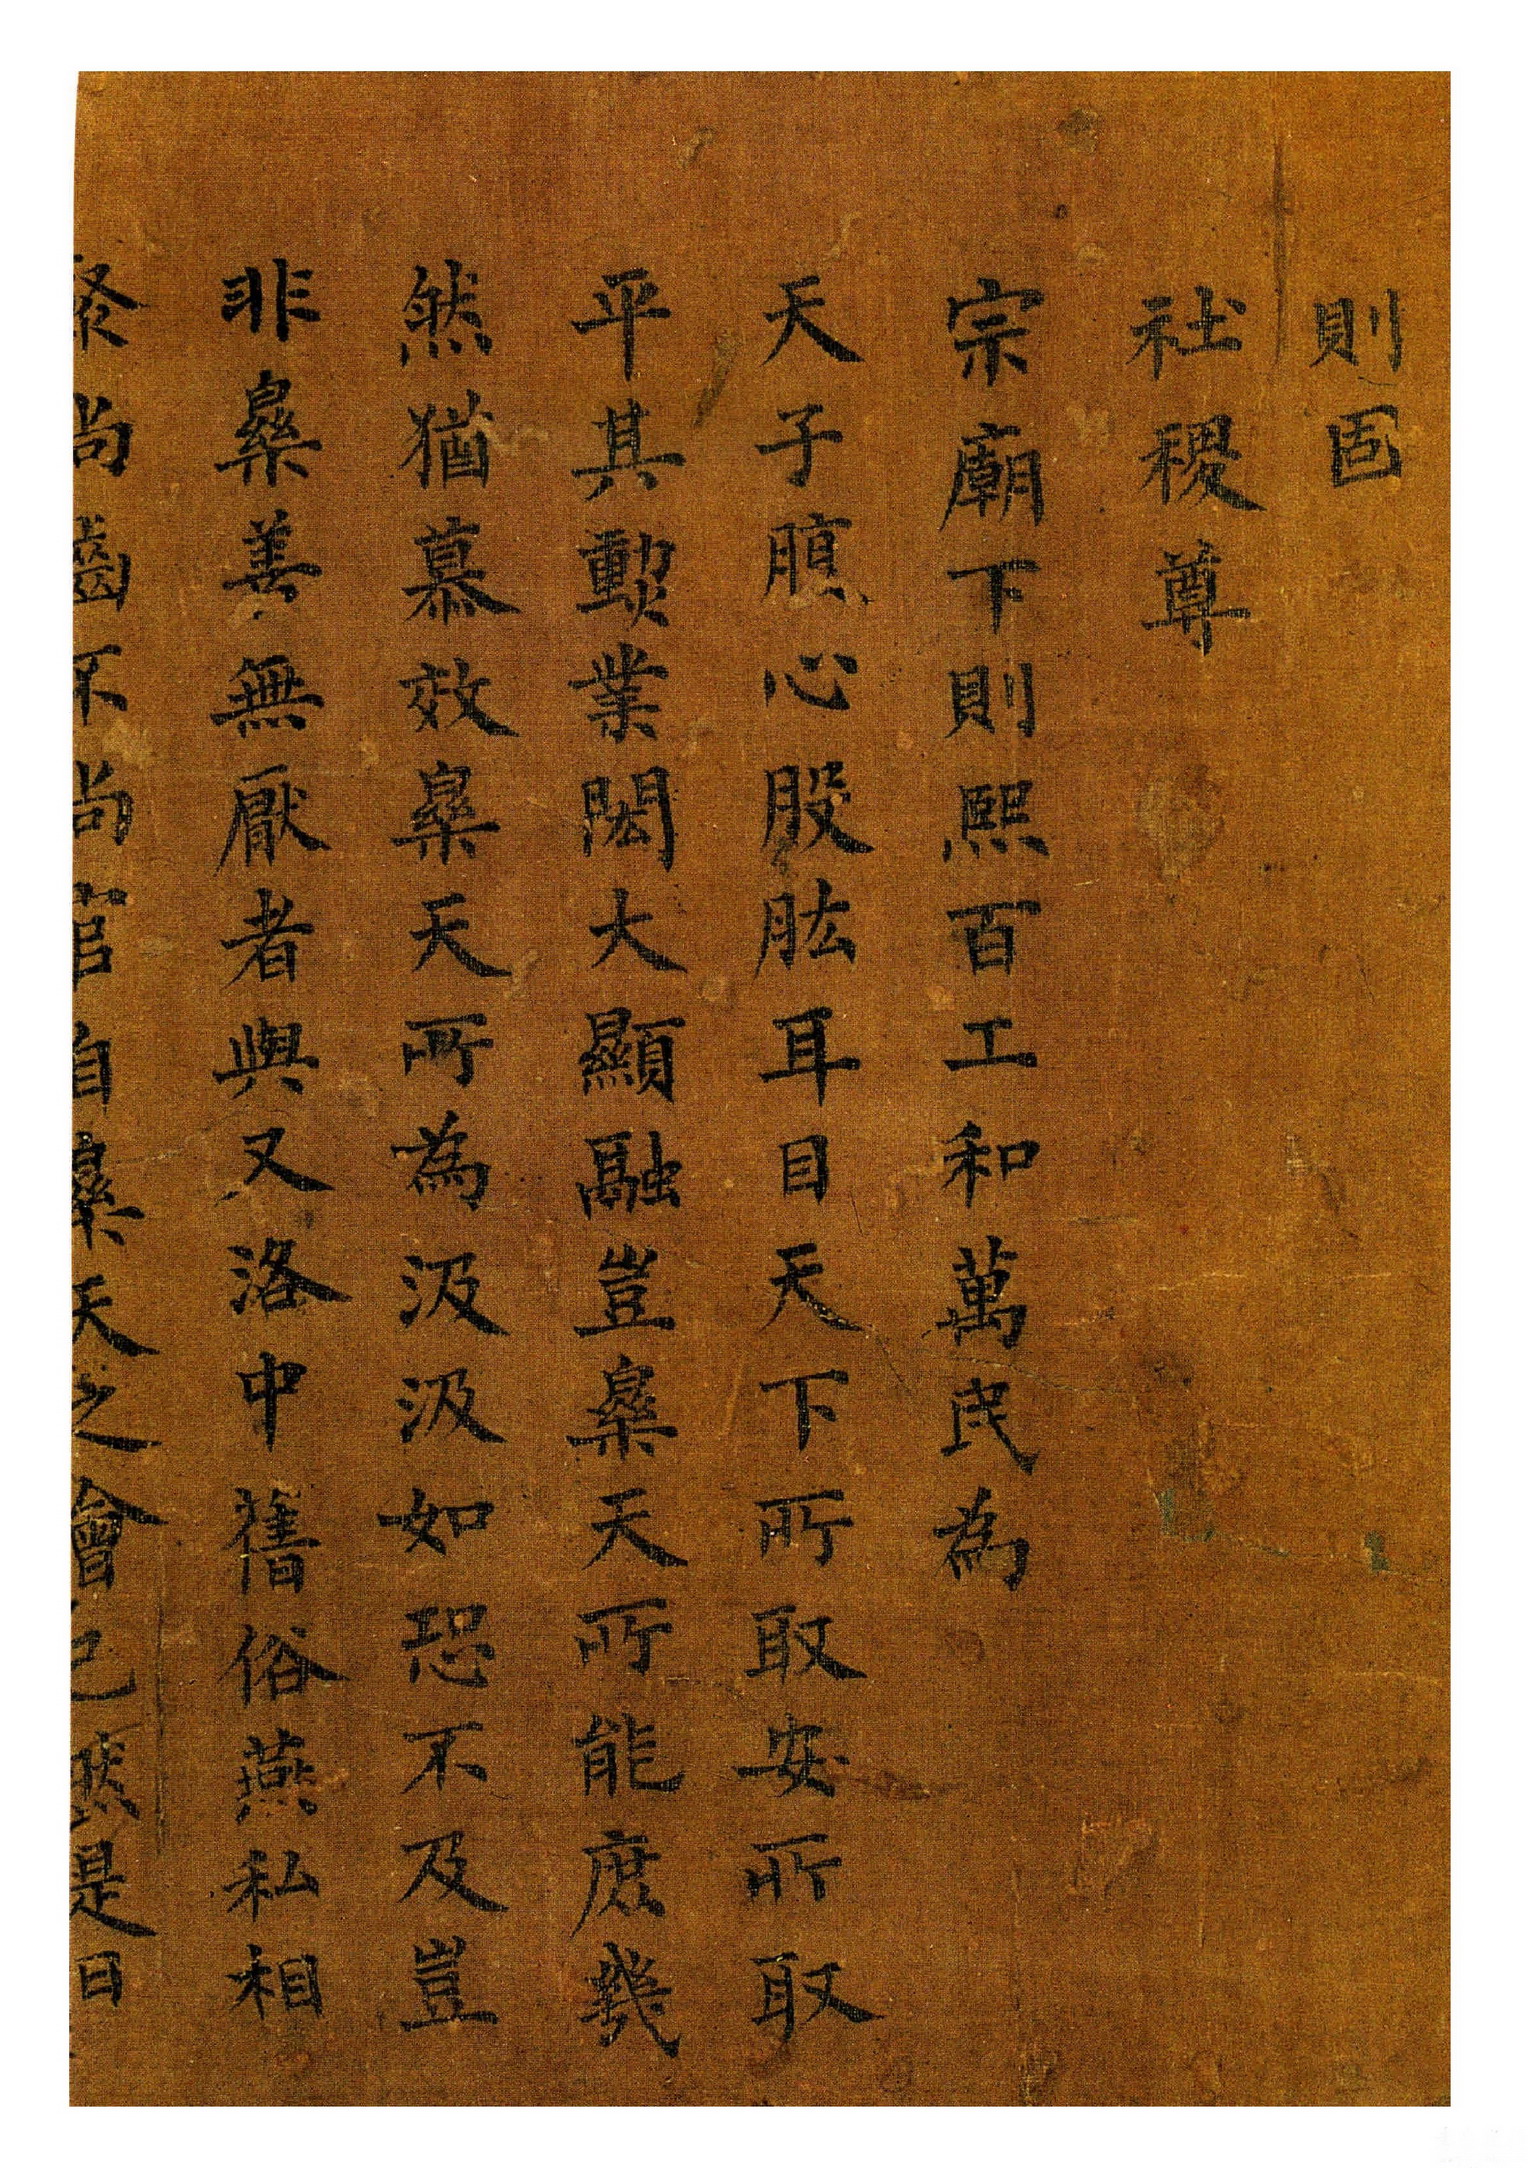 則固
社稷尊
宗廟下則熙百工和萬民為
天子腹心股肱耳目天下所取安所取
平其勳業閎大顯融豈樂天所能庶幾
然猶慕效樂天所為汲汲如恐不及豈
非樂善無厭者與又洛中舊俗燕私相
聚尚齒不尚官自樂天之會已然是日